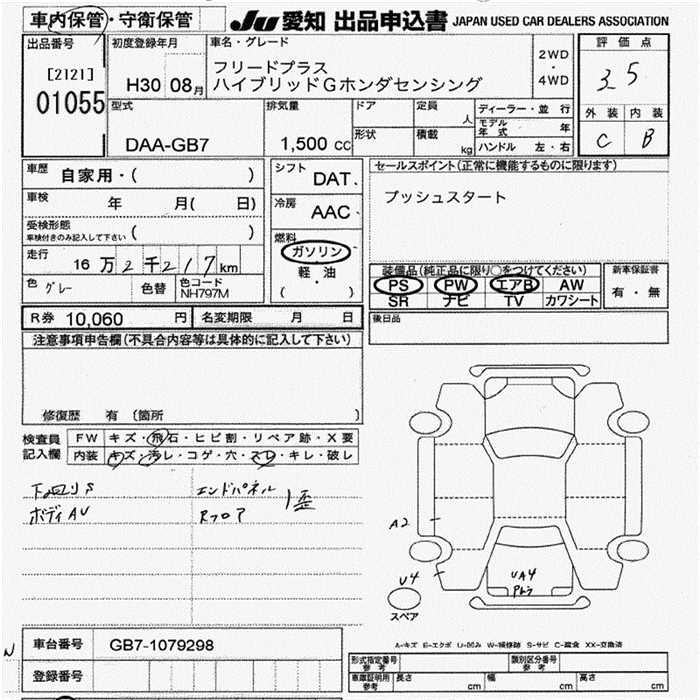 車内保管・守衛保管
JU 愛知 出品申込書 JAPAN USED CAR DEALERS ASSOCIATION
出品番号
[2121]
01055
初度登録年月
H30 08月
車名・グレード
フリードプラス
ハイブリッドGホンダセンシング
2WD
・
4WD
評価点
3.5
外装 内装
C B
型式
DAA-GB7
排気量
1,500 cc
ドア
形状
定員 人
積載 kg
ディーラー・並 行
モデル年式 年
ハンドル 左・右
車歴 自家用・( )
車検 年 月( 日)
受検形態
車検付きのみ記入して下さい ( )
走行 16万2千217km
色 グレー 色替 色コード NH797M
シフト DAT
冷房 AAC
燃料
ガソリン
・
軽・油
・
( )
セールスポイント(正常に機能するものに限ります)
プッシュスタート
装備品(純正品に限り○をつけてください)
PS PW エアB AW
SR ナビ TV カワシート
新車保証書
有・無
R券 10,060 円 名変期限 月 日
後日品
注意事項申告欄(不具合内容等は具体的に記入して下さい)
修復歴 有 (箇所 )
検査員記入欄
FW キズ・飛石・ヒビ割・リペア跡・X要
内装 キズ・汚レ・コゲ・穴・スレ・キレ・破レ
下回りS
ボディAU
エンドパネル
Rフロア
歪
A2
U4
UA4
スペア
A-キズ E-エクボ U-凹み W-補修跡 S-サビ C-腐食 XX-交換済
N
車台番号 GB7-1079298
登録番号
形式指定番号 参考
類別区分番号 参考
車庫証明用 参考 長さ cm 幅 cm 高さ cm